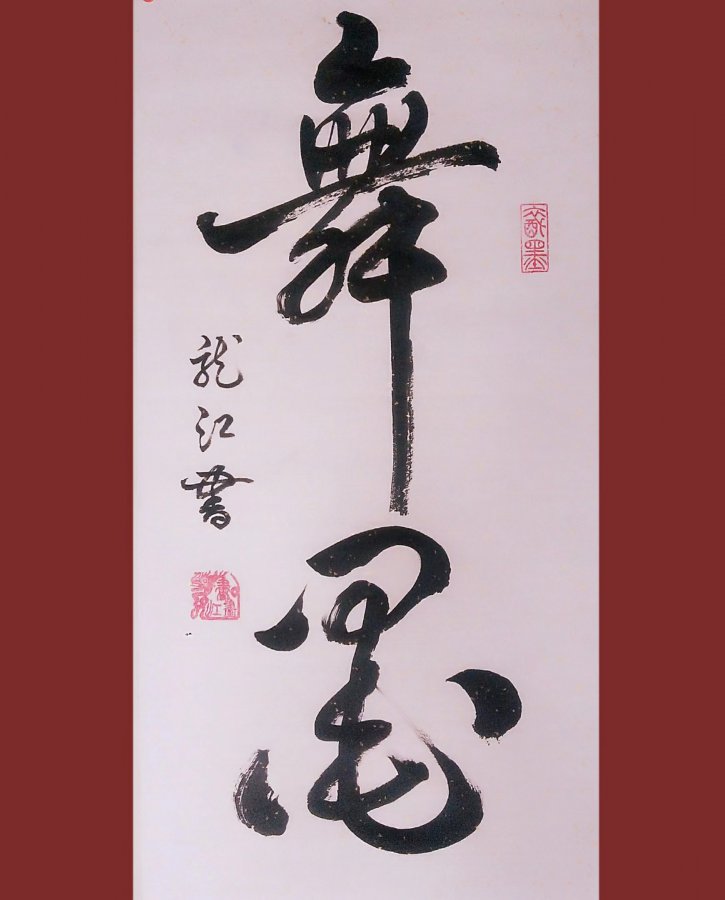 舞墨
龍江書